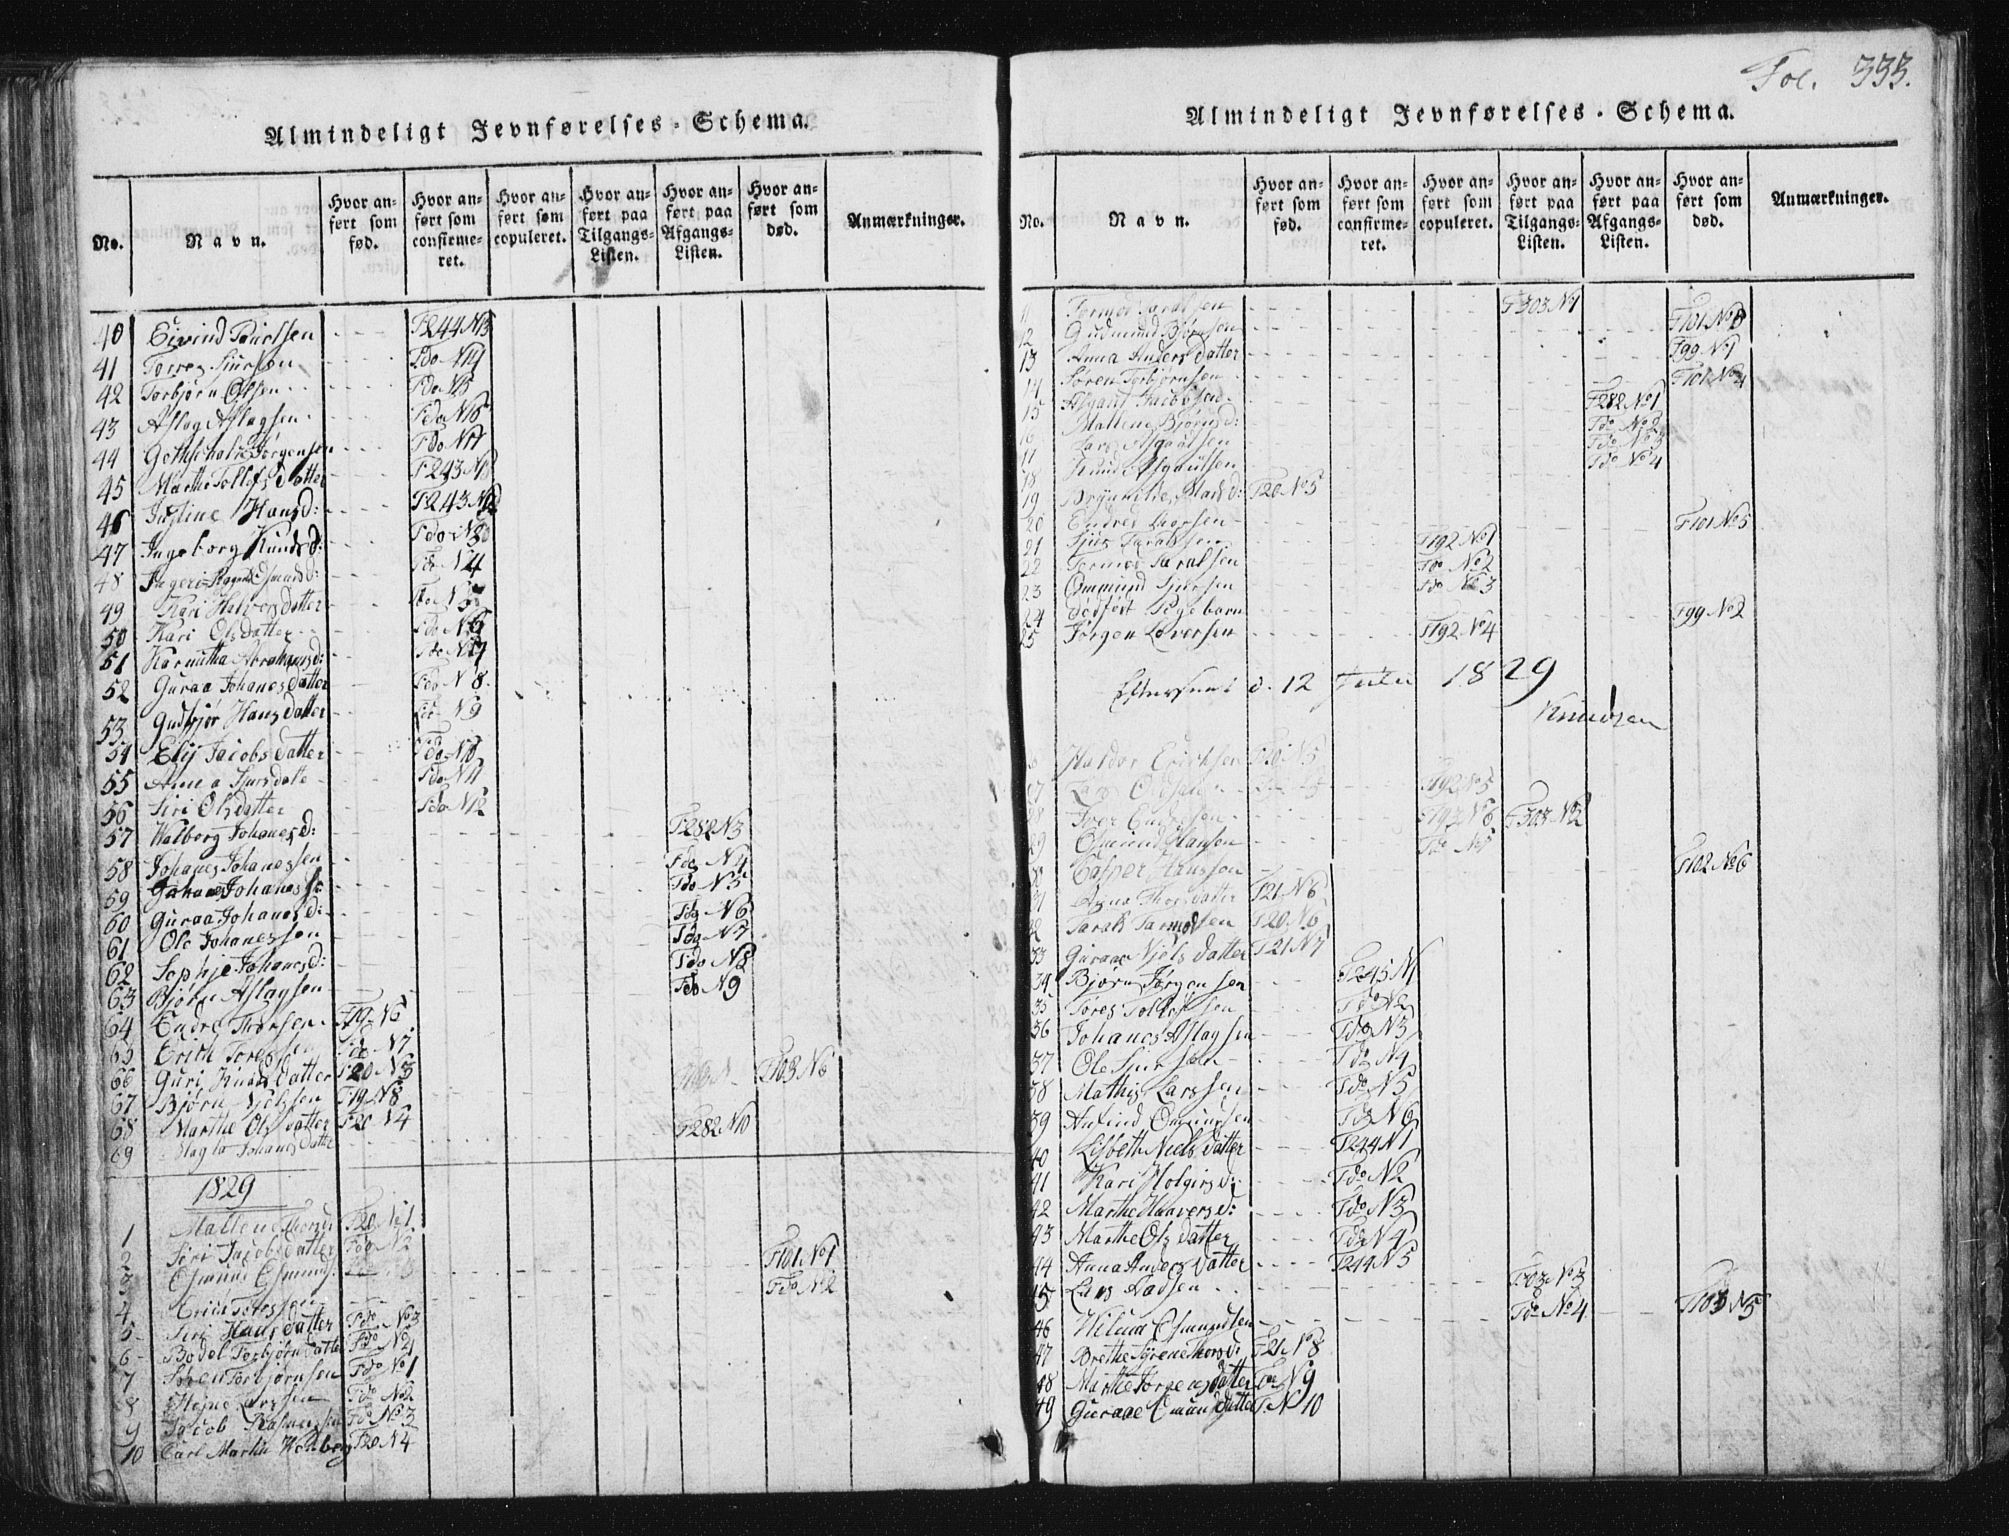 Almindeligt Jevnførelses-Schema.
No. Navn. Hvor anført som fød. Hvor anført som confirmeret. Hvor anført som copuleret. Hvor anført paa Tilgangs-Listen. Hvor anført paa Afgangs-Listen. Hvor anført som død. Anmærkninger.
40 Eivind Poulsen F244 N13
41 Torres Sjursen Fdo N14
42 Torbjørn Olsen Fdo N15
43 Aslag Aslagsen Fdo N16
44 Jørgensen Fdo N17
45 Marthe Tollefsdatter F243 N1
46 Justine Hansd: F243 N2
47 Ingeborg Knudsd: Fdo N3
48 Ingeri Fdo N4
49 Kari Halversdatter Fdo N5
50 Kari Olsdatter Fdo N6
51 Abrahamsd: Fdo N7
52 Guraa Johanesdatter Fdo N8
53 Gudbjør Hansdatter Fdo N9
54 Elij Jacobsdatter Fdo N10
55 Anna Sjursdatte Fdo N11
56 Siri Olsdatter Fdo N12
57 Walborg Johanesd: F282 N3
58 Johanes Johanessen Fdo N4
59 Johanes Fdo N5
60 Guraa Johanesd: Fdo N6
61 Ole Johanessen Fdo N7
62 Sophje Johanesd: Fdo N8
63 Bjørn Aslagsen Fdo N9
64 Endre Thorsen F19 N6
65 Erich Toressen Fdo N7
66 Guri Knudsdatter F20 N3 F103 N6
67 Bjørn Njelssen F19 N8
68 Marthe Olsdatter F20 N4 F282 N10
69 Magla Johanesdatte
1829
1 Mallene Thorsd F20 N1
2 Siri Jacobsdatter Fdo N2
3 Osmund Osmunds F101 N1
4 Erich Toressen Fdo N2
5 Siri Hansdatter Fdo N3
6 Bodel Torbjørnsdatte Fdo N4
7 Søren Torbjørnsen Fdo N1
8 Larssen Fdo N2
9 Jacob Rasmussen Fdo N3
10 Carl Martin F20 N4
Fol. 333.
Almindeligt Jevnførelses-Schema.
No. Navn. Hvor anført som fød. Hvor anført som confirmeret. Hvor anført som copuleret. Hvor anført paa Tilgangs-Listen. Hvor anført paa Afgangs-Listen. Hvor anført som død. Anmærkninger.
11 Tormod Taralsen F303 N1
12 Gudmund Bjørnsen F101 No 3
13 Anna Andersdatter F99 N1
14 Søren Torbjørnsen F101 No 4
15 Asgaut Jacobsen F282 No 1
16 Mallene Bjørnsd: Fdo No 2
17 Lars Asgautsen Fdo No 3
18 Knud Asgautsen Fdo No 4
19 Brynnilde Madsd: F20 No 5
20 Endres Thorsen F101 No 5
21 Sjur Taralssen F192 No 1
22 Tormod Taralsen Fdo No 2
23 Ommund Sjursen Fdo No 3
24 dødfødt Pigebarn F99 No 2
25 Jørgen Laversen F192 No 4
Efterseet d. 12 Julii 1829
Knudsen
Haldor Ericksen F20 N5
27 Lars F192 N5
28 Iver F192 N6 F303 N2
29 Osmund Hansen Fdo N7
30 Casper Hanssen F102 No 6
31 Anna Thorsdatter F21 N6
32 Tarals Tarmodsen F20 N6
33 Guraae Njelsdatter F21 N7
34 Bjørn Jørgensen F245 N1
35 Tores Tollefsen Fdo N2
36 Johanes Aslagsen Fdo N3
37 Ole Sjursen Fdo N4
38 Mathis Larssen Fdo N5
39 Anfind Omundsen Fdo N6
40 Lisbeth Nielsdatter F244 N1
41 Kari Holgersd: Fdo N2
42 Marthe Haaversd: Fdo N3
43 Marthe Olsdatter Fdo N4
44 Anna Andersdatter F244 N5
45 Lars Ladsen F303 N3
46 Osmundsen Fdo No 4 F103 N5
47 Brethe Syrene Thorsd: F21 N8
48 Marthe Jørgensdatter Fdo N9
49 Guraae Omundsdatter F N10